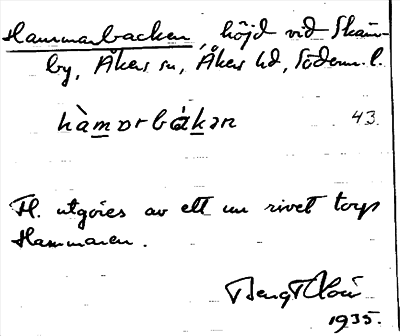 Hammarbacken, höjd vid Skäm-
by, Åkers sn, Åkers hd, Söderm. l.
hàmɔrbákɔn 43.
H. utgöres av ett nu rivet torp
Hammaren.
Bengt
1935.